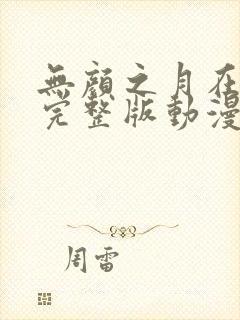 無顏之月在
完整版動漫
周雷